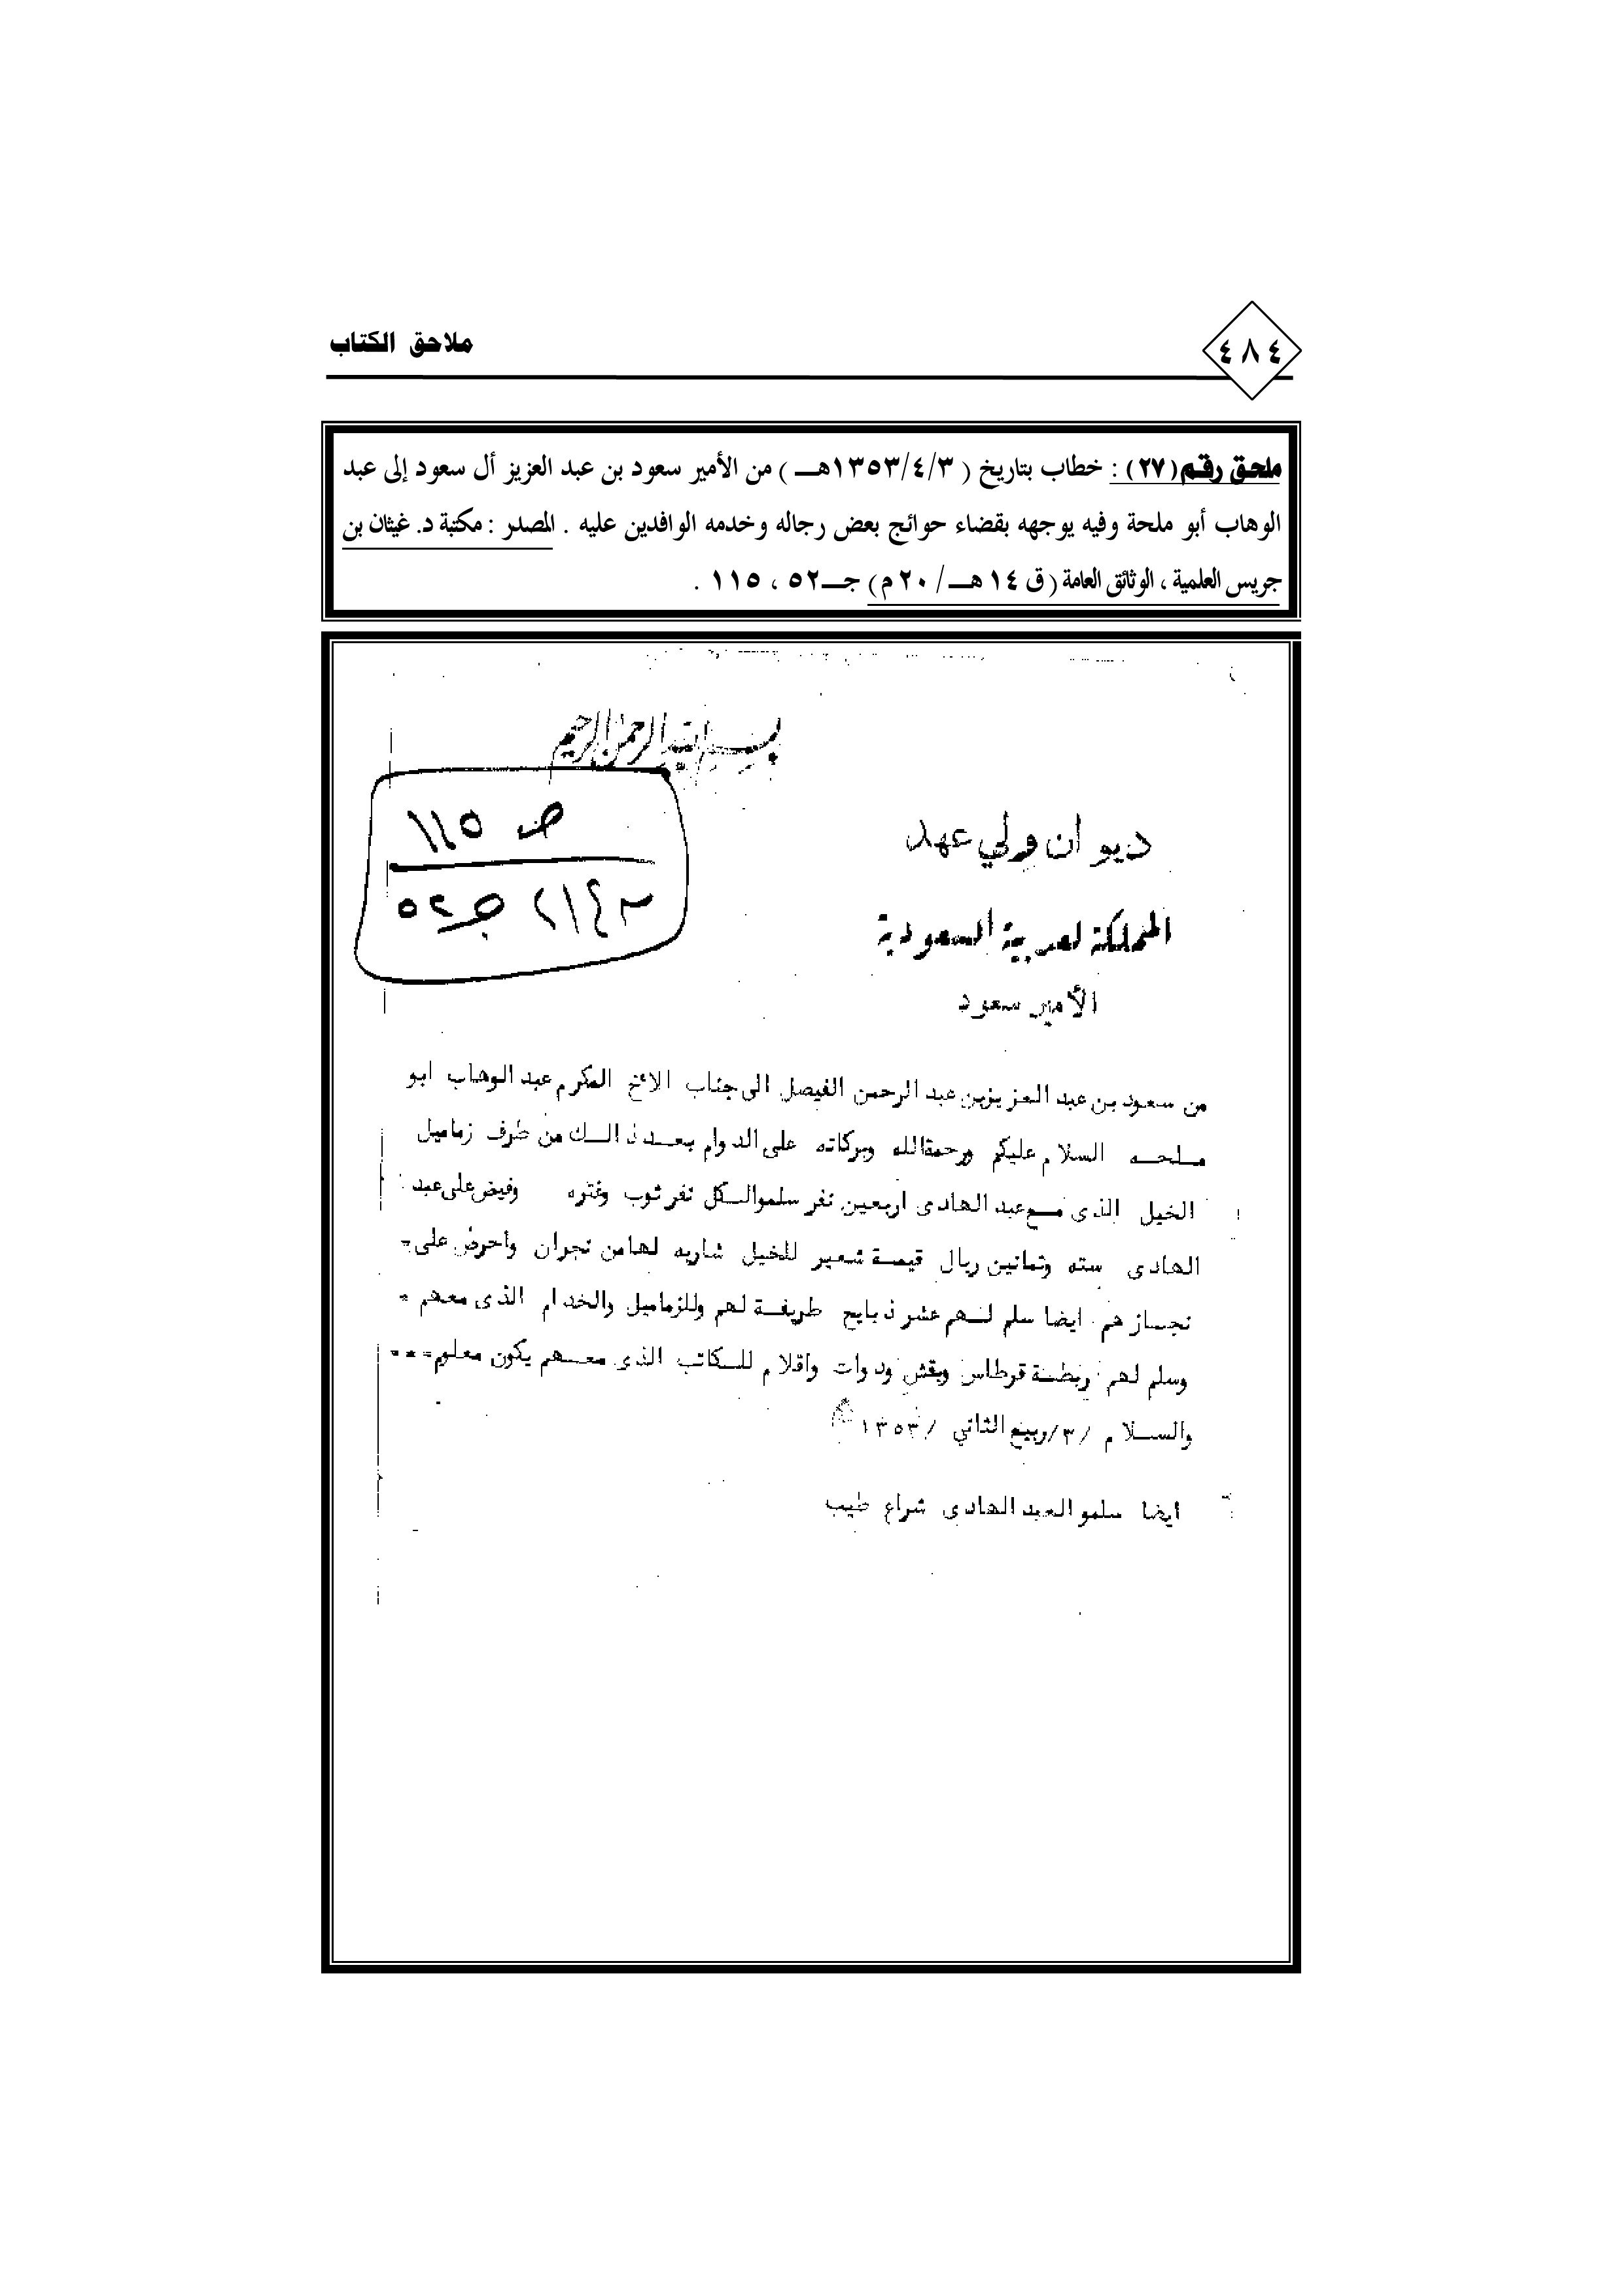 ملاحق الكتاب
٤٨٤
ملحق رقم (٢٧) : خطاب بتاريخ ( ١٣٥٣/٤/٣هـــ ) من الأمير سعود بن عبد العزيز أل سعود إلى عبد
الوهاب أبو ملحة وفيه يوجهه بقضاء حوائج بعض رجاله وخدمه الوافدين عليه . المصدر : مكتبة د. غيثان بن
جريس العلمية ، الوثائق العامة ( ق ١٤ هـــ / ٢٠ م ) جـــ٥٢ ، ١١٥ .
بسم الله الرحمن الرحيم
صـ ١١٥
جـ ٥٢
ديوان ولي عهد
المملكة لعربية السعودية
الأمير سعود
من سعود بن عبد العزيز بن عبد الرحمن الفيصل الى جناب الاخ المكرم عبد الوهاب ابو
ملحه السلام عليكم ورحمة الله وبركاته على الدوام بعد ذالك من طرف زماميل
الخيل الذى مع عبد الهادى اربعين نفر سلموالكل نفر ثوب وغتره وفيض على عبد
الهادى سته وثمانين ريال قيمة شعير للخيل شاريه لها من نجران واحرض على=
نجساز هم ايضا سلم لهم عشر ذبايح طريفة لهم وللزماميل والخدام الذى معهم =
وسلم لهم ربطة قرطاس وبقش ودوات واقلام للكاتب الذى معهم يكون معلوم===
والسلام /٣/ربيع الثاني /١٣٥٣
ايضا سلمو العبد الهادى شراع طيب